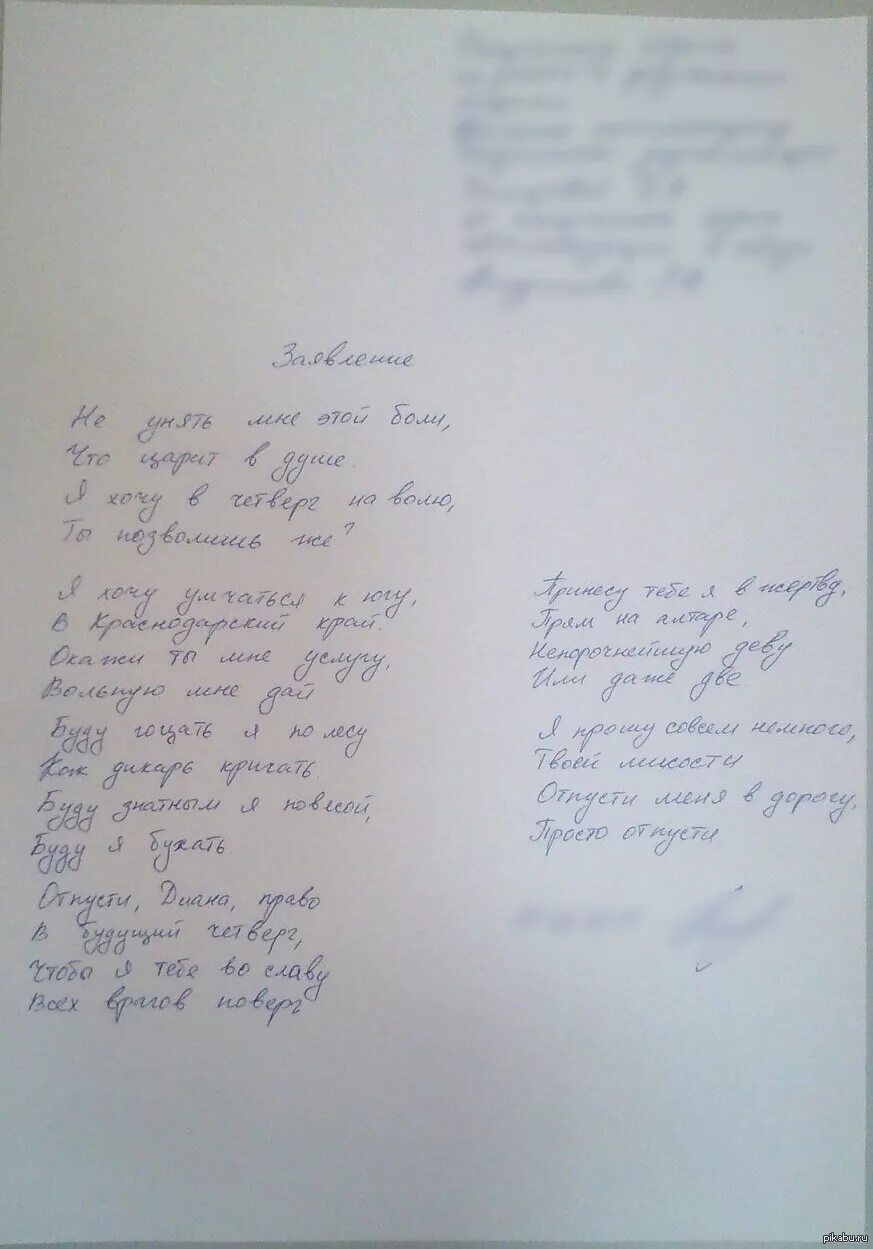 Заявление
Не унять мне этой боли,
Что царит в душе.
Я хочу в четверг на волю,
Ты позволишь же?
Я хочу умчаться к югу,
В Краснодарский край.
Окажи ты мне услугу,
Вольную мне дай
Буду гоцать я по лесу
Как дикарь кричать.
Буду знатным я повесой,
Буду я бухать.
Отпусти, Диана, право
В будущий четверг,
Чтобы я тебе во славу
Всех врагов поверг
Принесу тебе я в жертву,
Прям на алтаре,
Непорочнейшую деву
Или даже две
Я прошу совсем немного,
Твоей милости
Отпусти меня в дорогу,
Просто отпусти
pikabu.ru